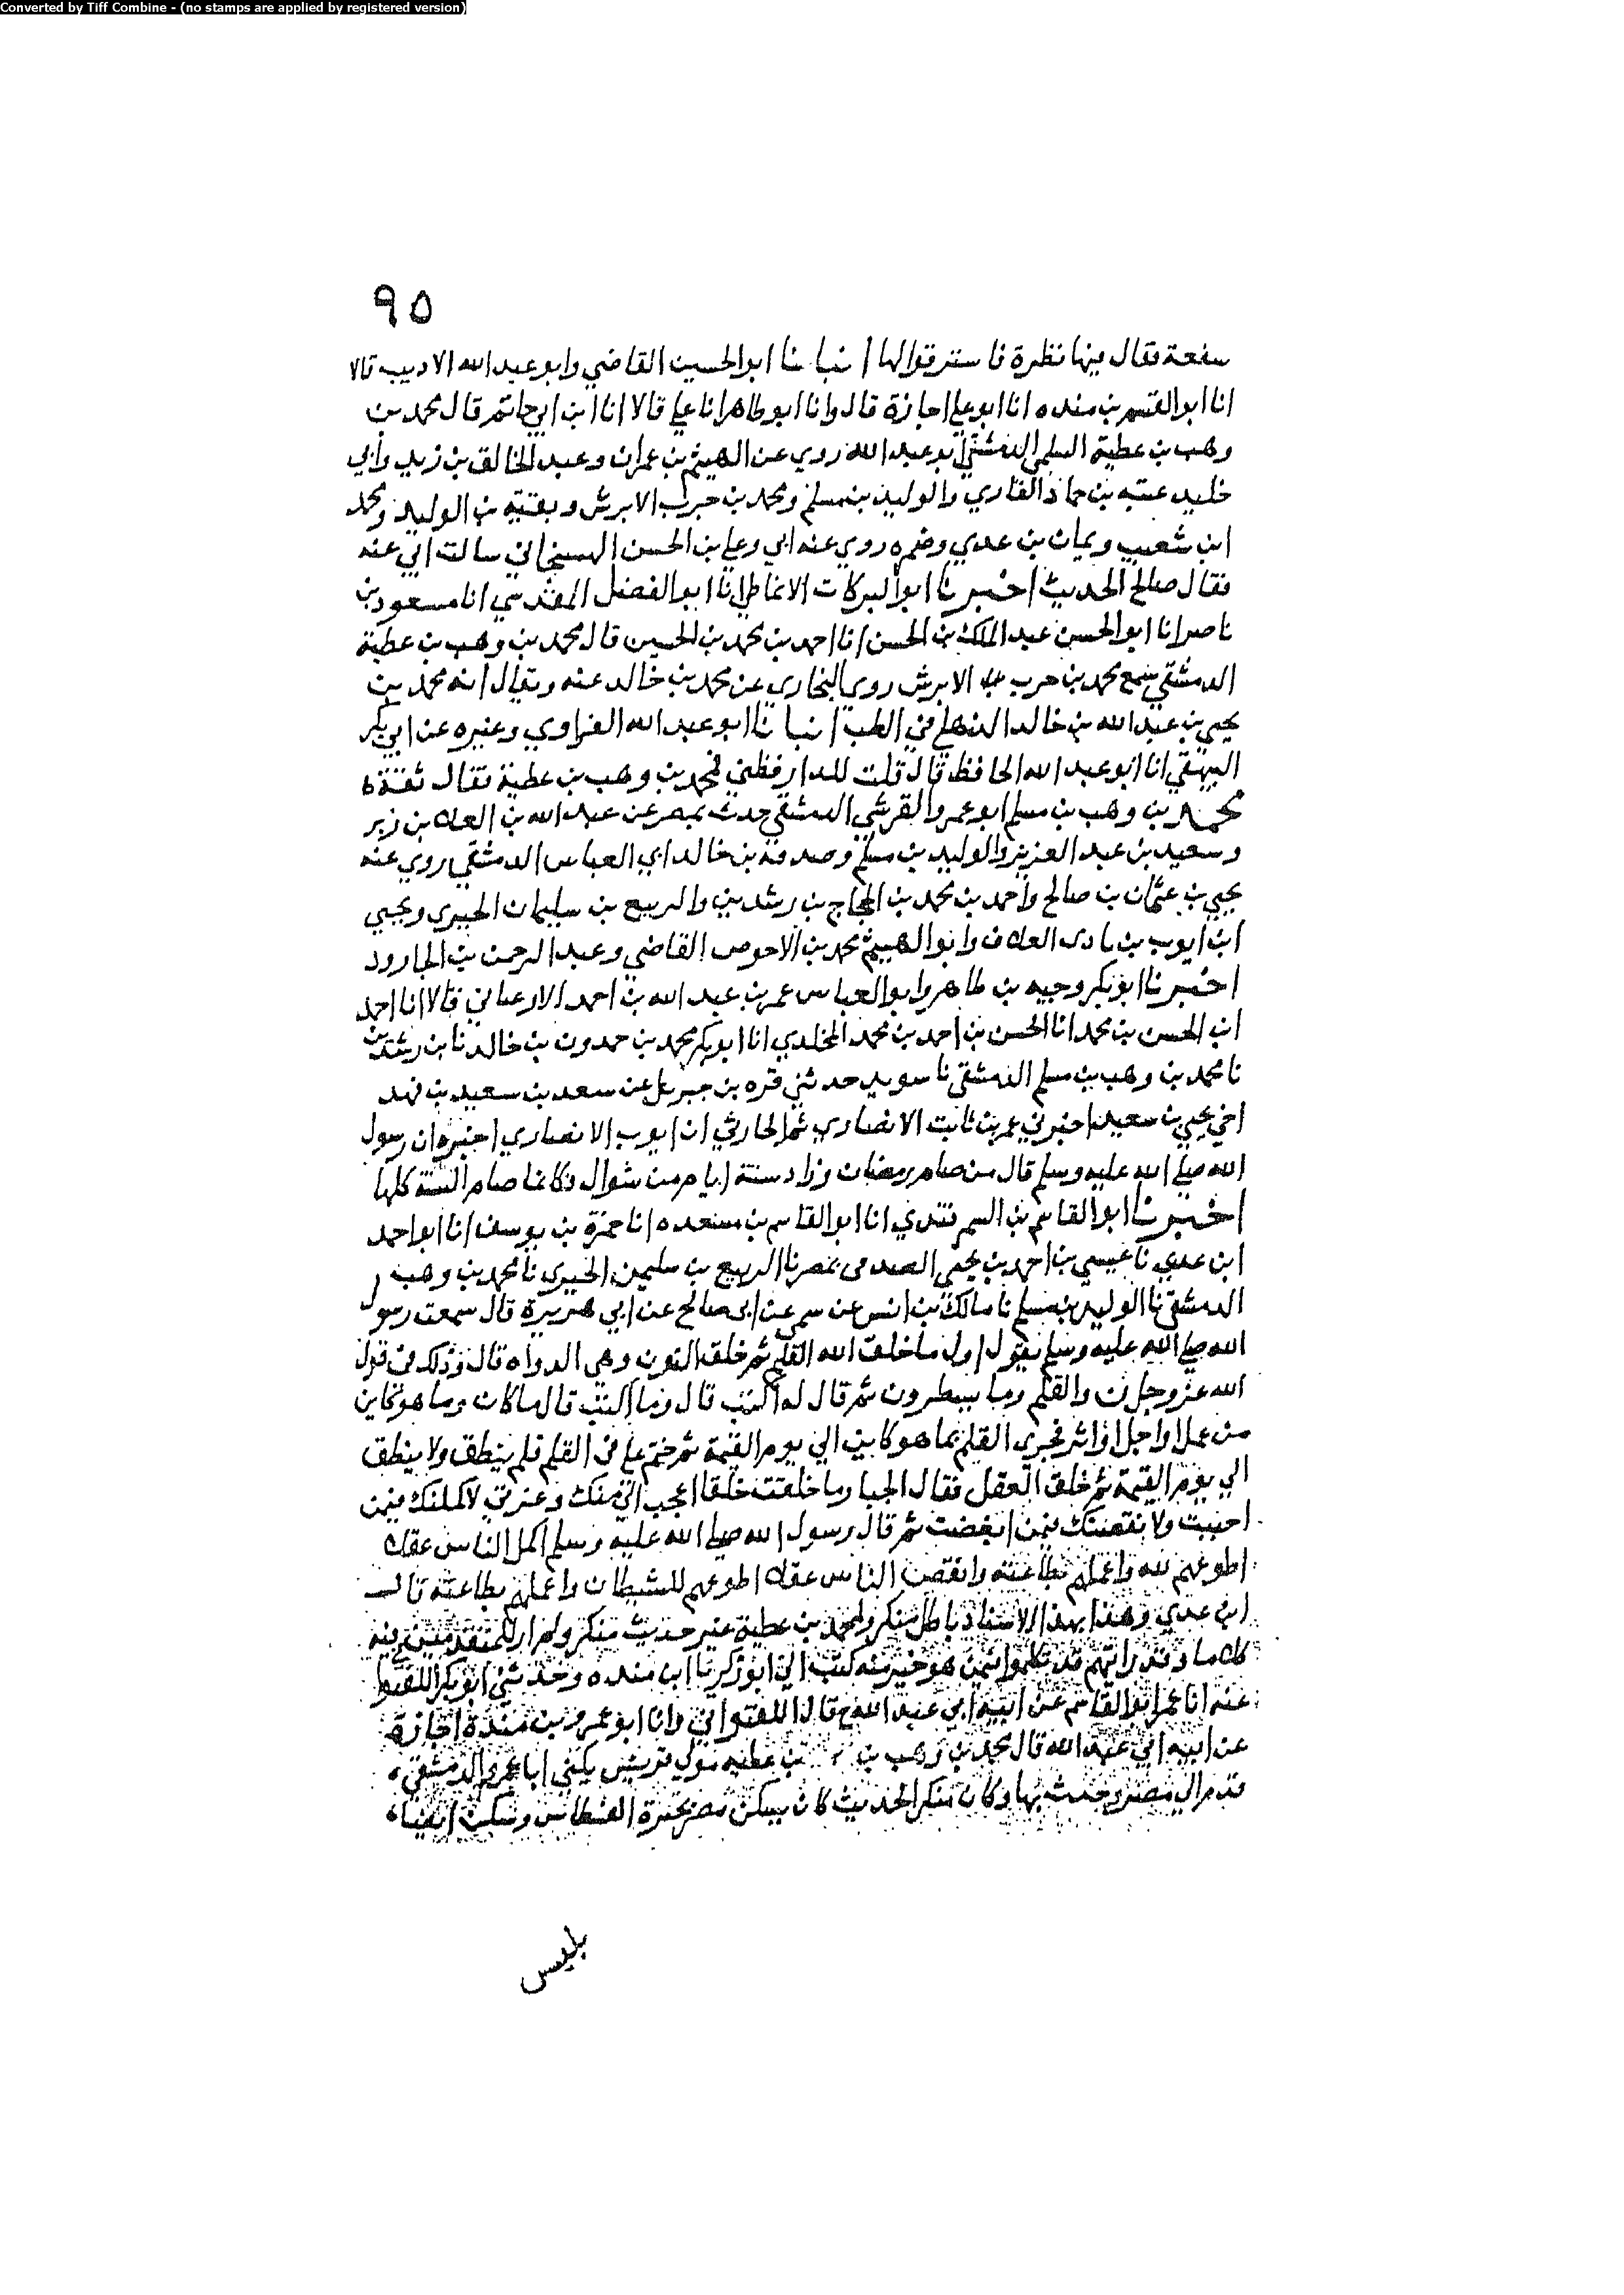 Converted by Tiff Combine - (no stamps are applied by registered version)
٩٥
سفعة فقال فيها نظرة فاسترقوا لها انبانا ابو الحسين القاضي وابو عبد الله الاديب قالا
انا ابو القسم بن منده انا ابو علي اجازة قال وانا ابو طاهر انا علي قالا انا ابن ابي حاتم قال محمد بن
وهب بن عطية السلمي الدمشقي ابو عبد الله روي عن الهيثم بن عمران وعبد الخالق بن زيد وابي
خليد عتبه بن حماد القاري والوليد بن مسلم ومحمد بن حرب الابرش وبقية بن الوليد ومحمد
ابن شعيب ويمان بن عدي وضمره روي عنه ابي وعلي بن الحسن الهسنجاني سالت ابي عنه
فقال صالح الحديث اخبرنا ابو البركات الانماطي انا ابو الفضل المقدسي انا مسعود بن
ناصر انا ابو الحسن عبد الملك بن الحسن انا احمد بن محمد بن الحسين قال محمد بن وهب بن عطية
الدمشقي سمع محمد بن حرب الابرش روي البخاري عن محمد بن خالد عنه ويقال انه محمد بن
يحيي بن عبد الله بن خالد الذهلي في الطب انبانا ابو عبد الله الفراوي وغيره عن ابي بكر
البيهقي انا ابو عبد الله الحافظ قال قلت للدارقطني فمحمد بن وهب بن عطية فقال ثقة ه
محمد بن وهب بن مسلم ابو عمرو القرشي الدمشقي حدث بمصر عن عبد الله بن العلا بن زبر
وسعيد بن عبد العزيز والوليد بن مسلم وصدقة بن خالد ابي العباس الدمشقي روي عنه
يحيي بن عثمان بن صالح واحمد بن محمد بن الحجاج بن رشدين والربيع بن سليمان الجيزي ويحيي
ابن ايوب بن بادي العلاف وابو الهيثم محمد بن الاحوص القاضي وعبد الرحمن بن الجارود
اخبرنا ابو بكر وجيه بن طاهر وابو العباس عمر بن عبد الله بن احمد الارغياني قالا انا احمد
ابن الحسن بن محمد انا الحسن بن احمد بن محمد المخلدي انا ابو بكر محمد بن حمدون بن خالد نا ابن رشدين
نا محمد بن وهب بن مسلم الدمشقي نا سويد حدثني قره بن جبريل عن سعد بن سعيد بن فهد
اخي يحيي بن سعيد اخبرني عمر بن ثابت الانصاري ثم الحارثي ان ايوب الانصاري اخبره ان رسول
الله صلي الله عليه وسلم قال من صام رمضان وزاد ستة ايام من شوال فكانما صام السنة كلها
اخبرنا ابو القاسم بن السمرقندي انا ابو القاسم بن مسعده انا حمزة بن يوسف انا ابو احمد
ابن عدي نا عيسي بن احمد بن يحيي الصدفي بمصر نا الربيع بن سليمن الجيزي نا محمد بن وهب
الدمشقي نا الوليد بن مسلم نا مالك بن انس عن سمي عن ابي صالح عن ابي هريرة قال سمعت رسول
الله صلي الله عليه وسلم يقول اول ما خلق الله القلم ثم خلق النون وهي الدواه قال وذلك في قول
الله عز وجل ن والقلم وما يسطرون ثم قال له اكتب قال وما اكتب قال ما كان وما هو كاين
من عمل او اجل او اثر فجري القلم بما هو كاين الي يوم القيمة ثم ختم علي في القلم فلم ينطق ولا ينطق
الي يوم القيمة ثم خلق العقل فقال الجبار ما خلقت خلقا اعجب الي منك وعزتي لاكملنك فيمن
احببت ولانقصنك فيمن ابغضت ثم قال رسول الله صلي الله عليه وسلم اكمل الناس عقلا
اطوعهم لله واعملهم بطاعته وانقص الناس عقلا اطوعهم للشيطان واعملهم بطاعته قال
ابن عدي وهذا بهذا الاسناد باطل منكر ولمحمد بن عطية غير حديث منكر ولم ار للمتقدمين فيه
كلاما وقد رايتهم قد تكلموا فيمن هو خير منه كتب الي ابو زكريا ابن منده وحدثني ابو بكر اللفتواني
عنه انا عمي ابو القاسم عن ابيه ابي عبد الله ح قال اللفتواني وانا ابو عمرو بن مندة اجازة
عن ابيه ابي عبد الله قال محمد بن وهب بن بن عطيه مولي قريش يكني ابا عمرو الدمشقي
قدم الي مصر وحدث بها وكان منكر الحديث كان يسكن مصر بحيرة الفسطاس وسكن ايضا
بلبيس